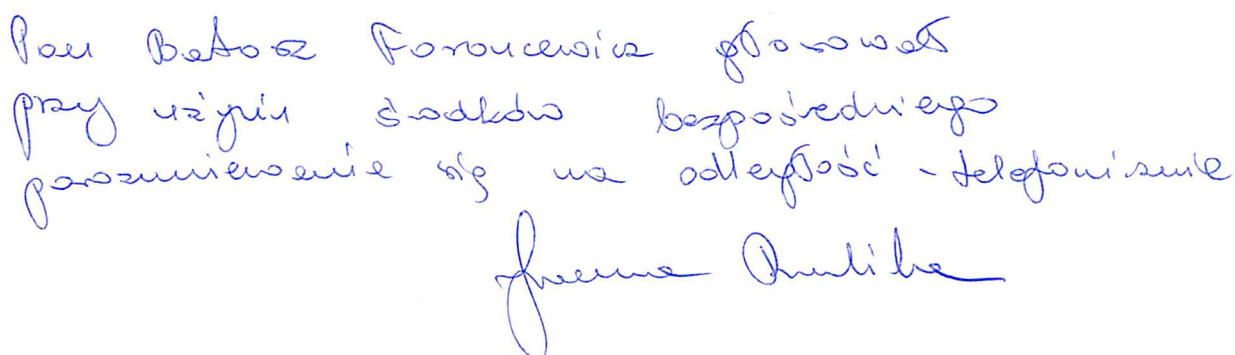 Pan Batosz Foroncewicz głosował
przy użyciu środków bezpośredniego
porozumiewanie się na odległość - telefonicznie
Joanna